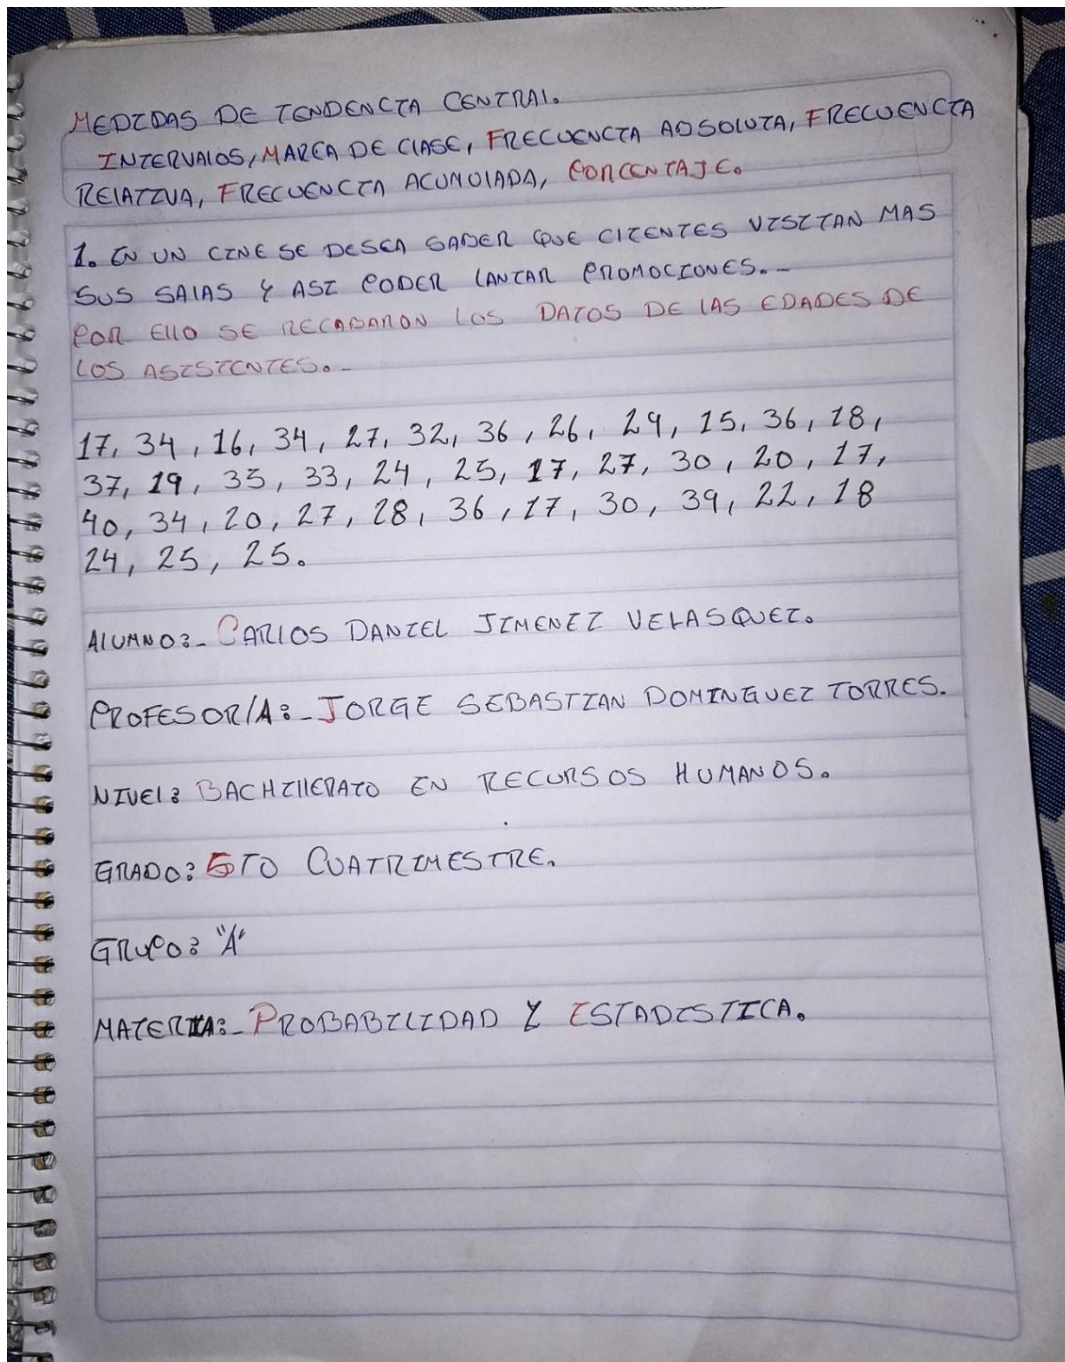 MEDIDAS DE TENDENCIA CENTRAL.
INTERVALOS, MARCA DE CLASE, FRECUENCIA ABSOLUTA, FRECUENCIA
RELATIVA, FRECUENCIA ACUMULADA, PORCENTAJE.
1. EN UN CINE SE DESEA SABER QUE CLIENTES VISITAN MAS
SUS SALAS Y ASI PODER LANZAR PROMOCIONES.-
POR ELLO SE RECABARON LOS DATOS DE LAS EDADES DE
LOS ASISTENTES.-
17, 34, 16, 34, 27, 32, 36, 26, 29, 15, 36, 18,
37, 19, 35, 33, 24, 25, 17, 27, 30, 20, 17,
40, 34, 20, 27, 28, 36, 17, 30, 39, 22, 18
24, 25, 25.
ALUMNO:- CARLOS DANIEL JIMENEZ VELASQUEZ.
PROFESOR/A:- JORGE SEBASTIAN DOMINGUEZ TORRES.
NIVEL: BACHILLERATO EN RECURSOS HUMANOS.
GRADO: 5TO CUATRIMESTRE.
GRUPO: "A"
MATERIA:- PROBABILIDAD Y ESTADISTICA.